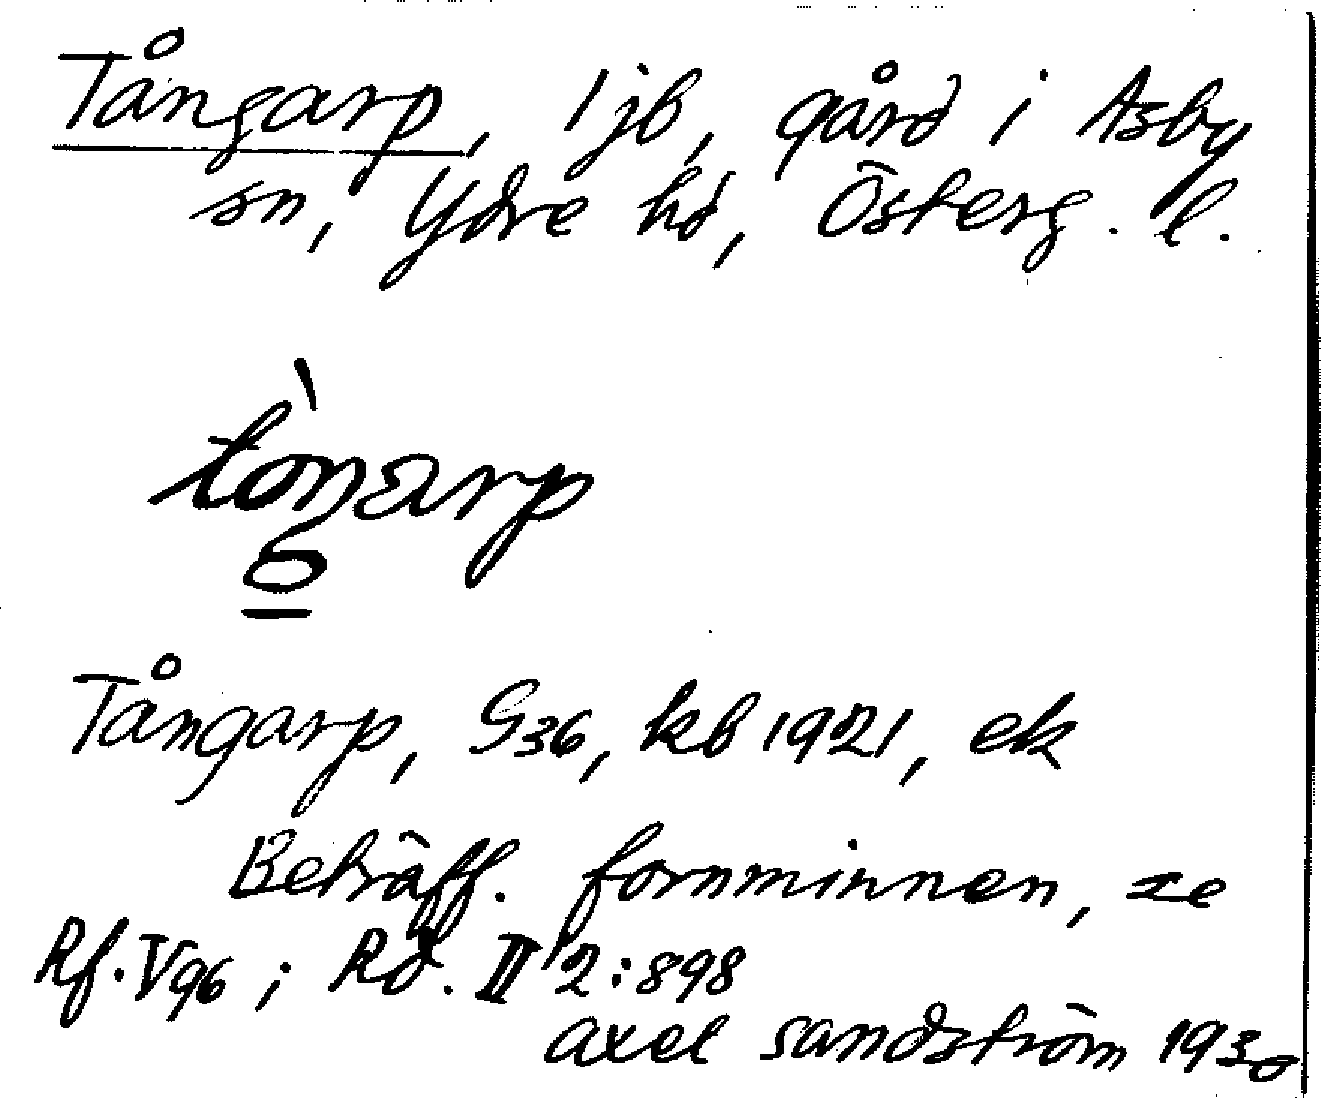 Tångarp, 1 jb, gård i Asby
sn, Ydre hd, Österg. l.
tòŋarp
Tångarp, G36, kb 1921, ek
Beträff. fornminnen, se
Rf. V96; Rd. II 2:898
axel sandström 1930